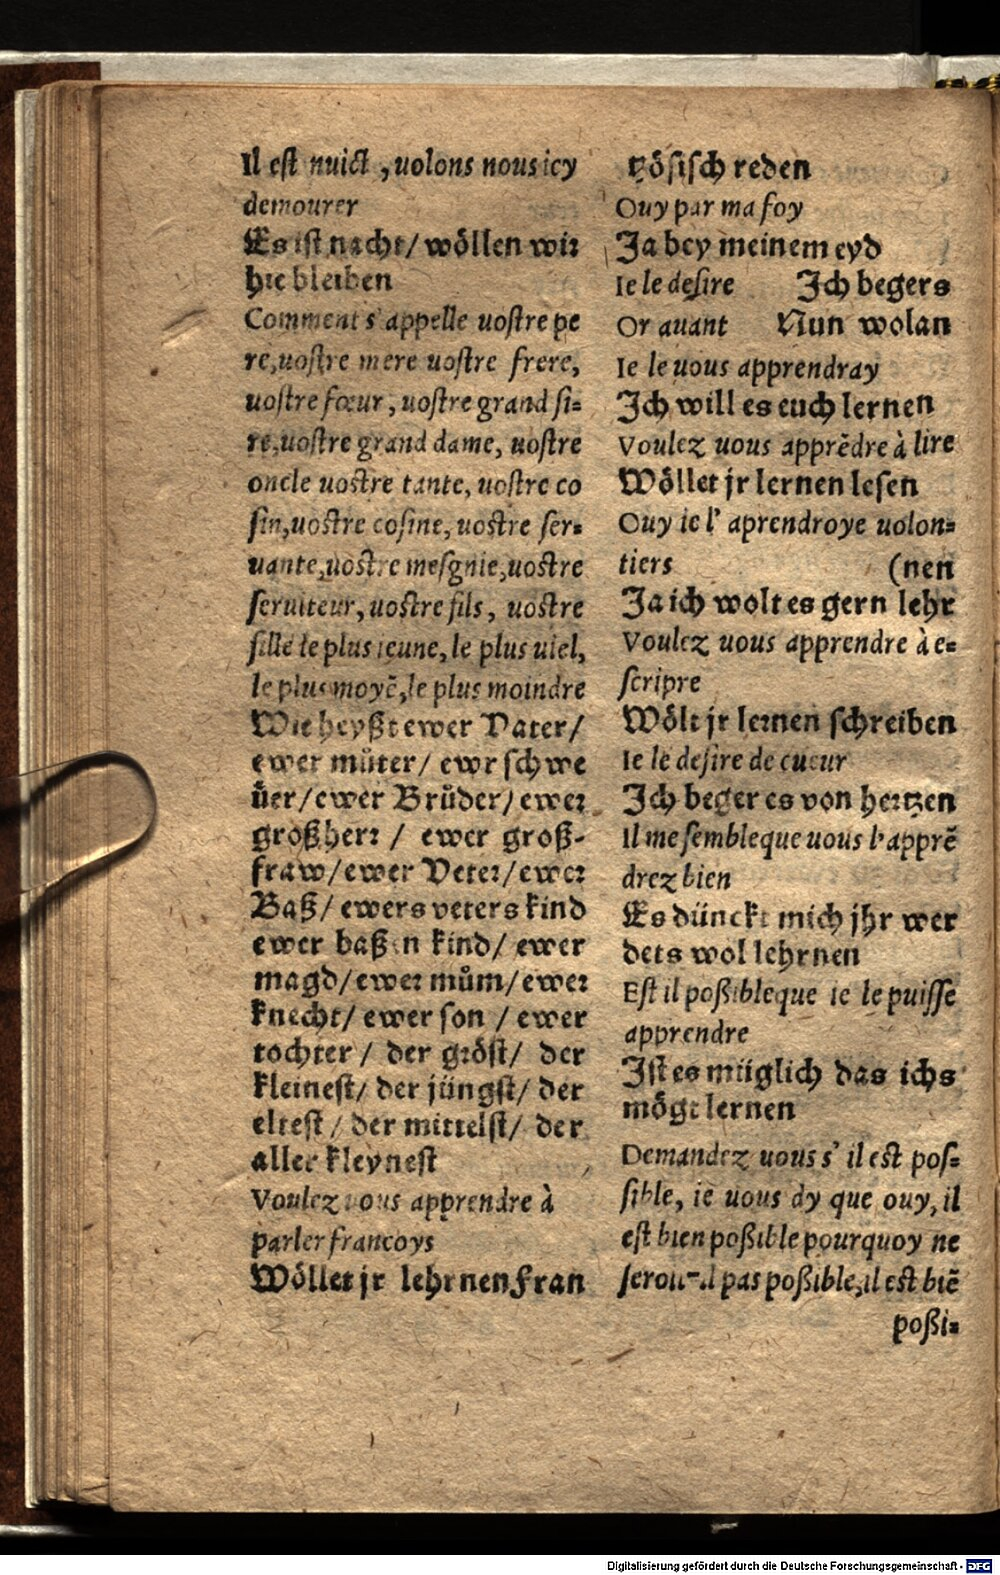 Il est nuict, uolons nous icy
demourer
Es ist nacht/ wöllen wir
hie bleiben
Comment s' appelle uostre pe
re, uostre mere uostre frere,
uostre fœur, uostre grand si=
re, uostre grand dame, uostre
oncle uostre tante, uostre co
sin, uostre cosine, uostre ser=
uante, uostre mesgnie, uostre
seruiteur, uostre fils, uostre
fille le plus ieune, le plus uiel,
le plus moyẽ, le plus moindre
Wie heyßt ewer Vater/
ewer můter/ ewr schwe
ster/ ewer Brůder/ ewer
großherr / ewer groß-
fraw/ ewer Veter/ ewer
Baß/ ewers veters kind
ewer baßen kind/ ewer
magd/ ewer mům/ ewer
knecht/ ewer son / ewer
tochter / der gröst/ der
kleinest/ der jüngst/ der
eltest / der mittelst/ der
aller kleynest
Voulez uous apprendre à
parler francoys
Wöllet jr lehrnen Fran
tzösisch reden
Ouy par ma foy
Ja bey meinem eyd
Ie le desire Ich begers
Or auant Nun wolan
Ie le uous apprendray
Ich will es euch lernen
Voulez uous apprẽdre à lire
Wöllet jr lernen lesen
Ouy ie l' aprendroye uolon=
tiers (nen
Ja ich wolt es gern lehr
Voulez uous apprendre à e=
scripre
Wölt jr lernen schreiben
Ie le desire de cueur
Ich beger es von hertzen
Il me semble que uous l' apprẽ
drez bien
Es dünckt mich jhr wer
dets wol lehrnen
Est il poßible que ie le puisse
apprendre
Ist es müglich das ichs
mögt lernen
Demandez uous s' il est pos=
sible, ie uous dy que ouy, il
est bien poßible pourquoy ne
seroit-il pas poßible, il est biẽ
poßi=
Digitalisierung gefördert durch die Deutsche Forschungsgemeinschaft - DFG